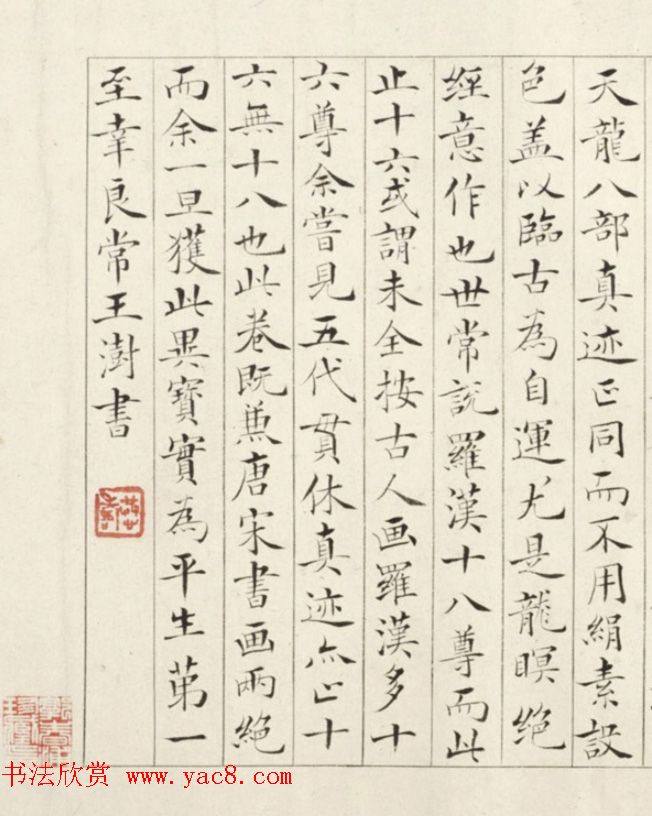 天龍八部真迹正同而不用絹素設
色盖以臨古為自運尤是龍瞑絕
經意作也世常說羅漢十八尊而此
止十六或謂未全按古人画羅漢多十
六尊余嘗見五代貫休真迹亦止十
六無十八也此卷既兼唐宋書画兩絕
而余一旦獲此異寶實為平生第一
至幸良常王澍書
书法欣赏 www.yac8.com